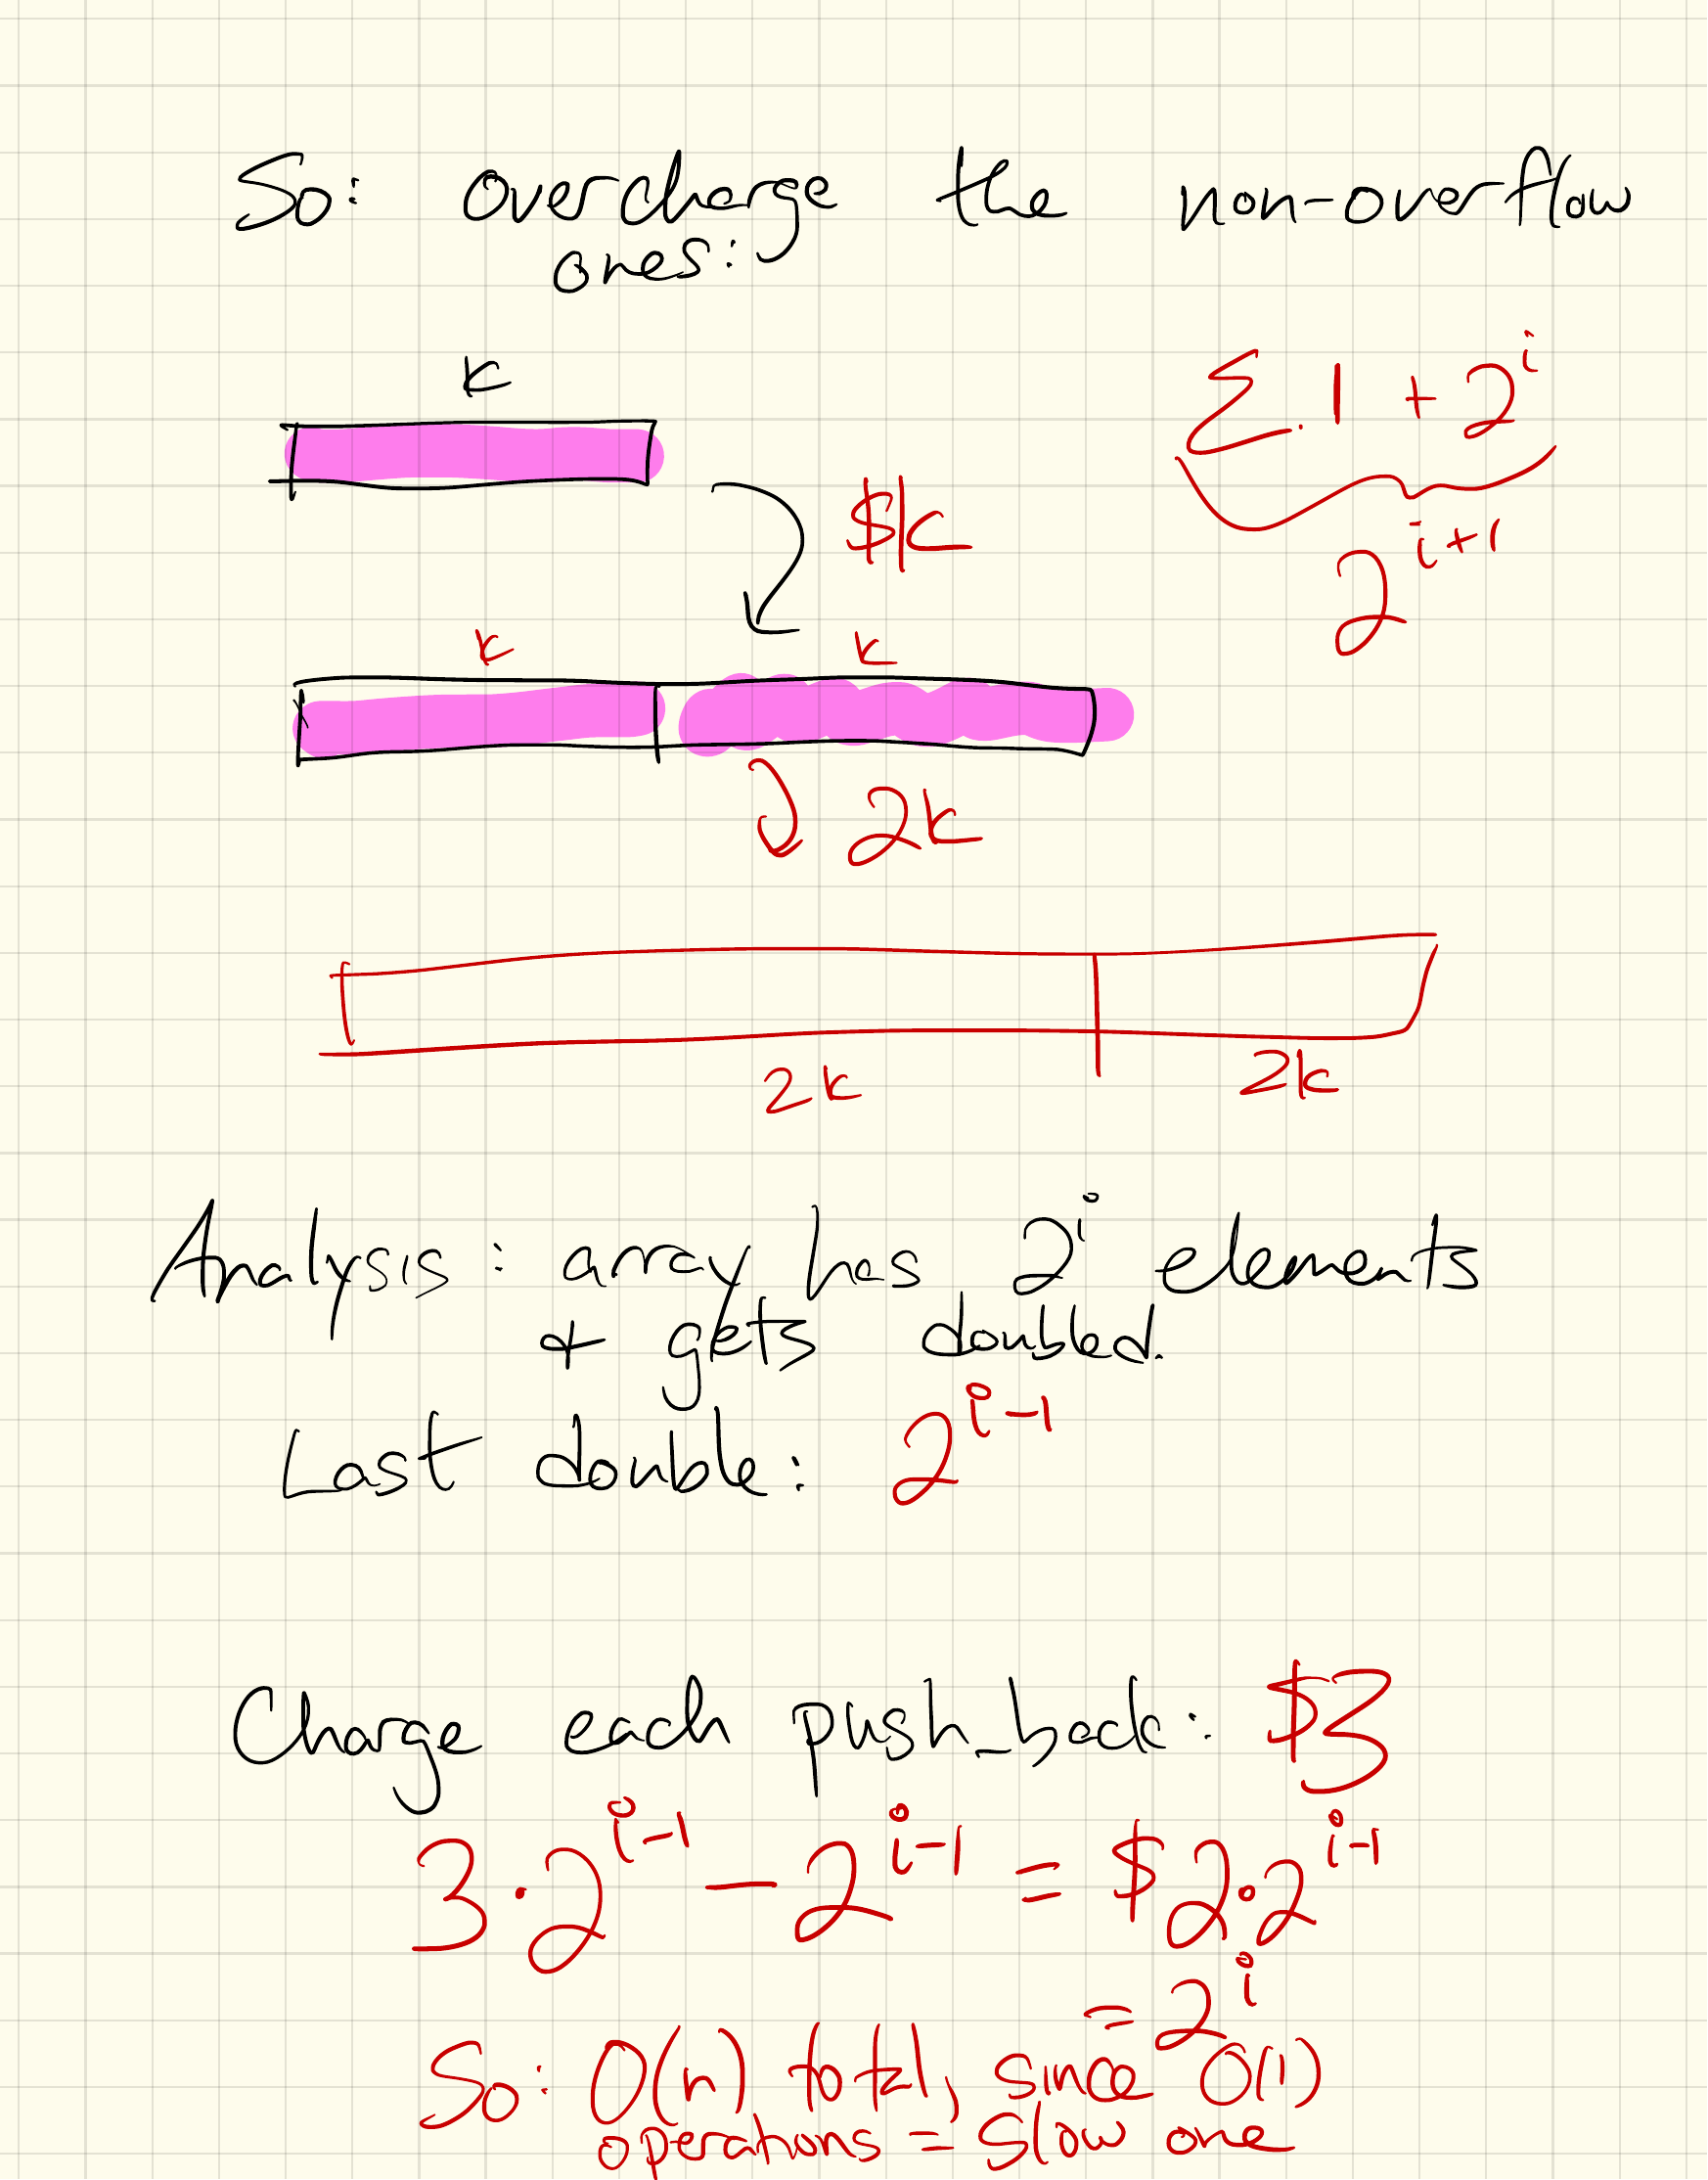 So: overcharge the non-overflow
ones:
k
Σ 1 + 2^i
$k
2^{i+1}
k k
2k
2k 2k
Analysis: array has 2^i elements
+ gets doubled.
Last double: 2^{i-1}
Charge each push_back: $3
3·2^{i-1} - 2^{i-1} = $2·2^{i-1}
= 2^i
So: O(n) total, since O(1)
operations = slow one